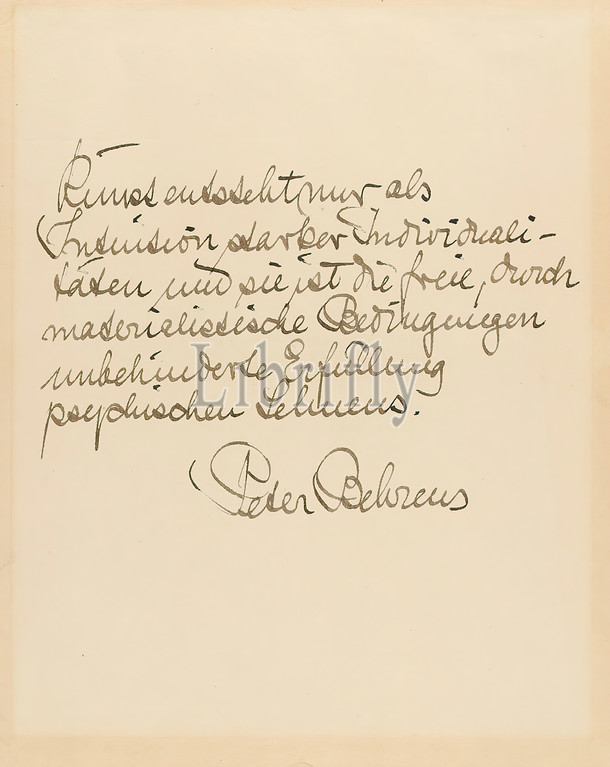 Kunst entsteht nur als
Intuision starker Individuali-
täten und sie ist die freie, durch
materialistische Bedingungen
unbehinderte Erfüllung
psychischen Sehnens.
Peter Behrens
Librifly